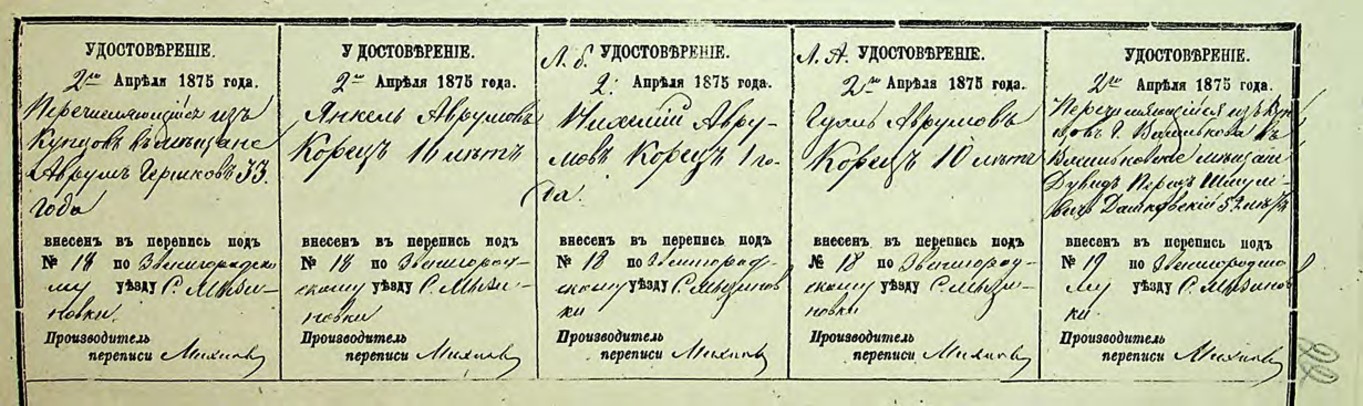 УДОСТОВѢРЕНІЕ.
2го Апрѣля 1875 года.
Перечисляющійся изъ
Купцовъ въ мѣщане
Аврумъ Гершковъ 33.
года
внесенъ въ перепись подъ
№ 18 по Звенигородско
му уѣзду С. Мызи-
новки.
Производитель
переписи
УДОСТОВѢРЕНІЕ.
2го Апрѣля 1875 года.
Янкель Аврумовъ
Корецъ 16 лѣтъ
внесенъ въ перепись подъ
№ 18 по Звенигород-
скому уѣзду С. Мызи-
новки
Производитель
переписи
Л. б. УДОСТОВѢРЕНІЕ.
2: Апрѣля 1875 года.
Авру-
мовъ Корецъ 1 го-
да.
внесенъ въ перепись подъ
№ 18 по Звенигород-
скому уѣзду С. Мызинов
ки
Производитель
переписи
Л. А. УДОСТОВѢРЕНІЕ.
2го Апрѣля 1875 года.
Аврумовъ
Корецъ 10 лѣтъ
внесенъ въ перепись подъ
№ 18 по Звенигород-
скому уѣзду С. Мызи-
новки
Производитель
переписи
УДОСТОВѢРЕНІЕ.
2го Апрѣля 1875 года.
Перечисляющійся изъ Куп
цовъ г. Василькова въ
Васильковские мѣщане
Дувидъ Перецъ Шмуле-
вичъ Дашковскій 52 лѣтъ
внесенъ въ перепись подъ
№ 19 по Звенигородско
му уѣзду С. Мызинов
ки.
Производитель
переписи